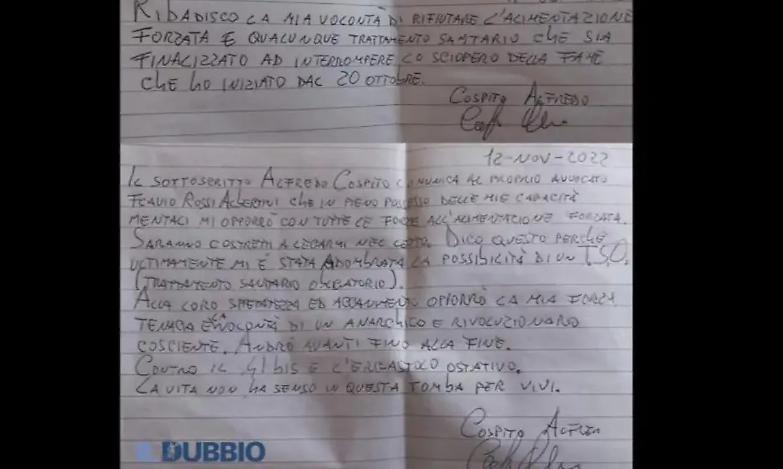 RIBADISCO LA MIA VOLONTÀ DI RIFIUTARE L'ALIMENTAZIONE
FORZATA E QUALUNQUE TRATTAMENTO SANITARIO CHE SIA
FINALIZZATO AD INTERROMPERE LO SCIOPERO DELLA FAME
CHE HO INIZIATO DAL 20 OTTOBRE.
COSPITO ALFREDO
12-NOV-2022
IL SOTTOSCRITTO ALFREDO COSPITO COMUNICA AL PROPRIO AVVOCATO
FLAVIO ROSSI ALBERTINI CHE IN PIENO POSSESSO DELLE MIE CAPACITÀ
MENTALI MI OPPORRÒ CON TUTTE LE FORZE ALL'ALIMENTAZIONE FORZATA.
SARANNO COSTRETTI A LEGARMI NEL LETTO. DICO QUESTO PERCHÉ
ULTIMAMENTE MI È STATA ADOMBRATA LA POSSIBILITÀ DI UN T.S.O.
(TRATTAMENTO SANITARIO OBLIGATORIO).
ALLA LORO SPIETATEZZA ED ACCANIMENTO OPPORRÒ LA MIA FORZA
TENACIA E VOLONTÀ DI UN ANARCHICO E RIVOLUZIONARIO
COSCIENTE. ANDRÒ AVANTI FINO ALLA FINE.
CONTRO IL 41 bis E L'ERGASTOLO OSTATIVO.
LA VITA NON HA SENSO IN QUESTA TOMBA PER VIVI.
COSPITO ALFREDO
IL DUBBIO